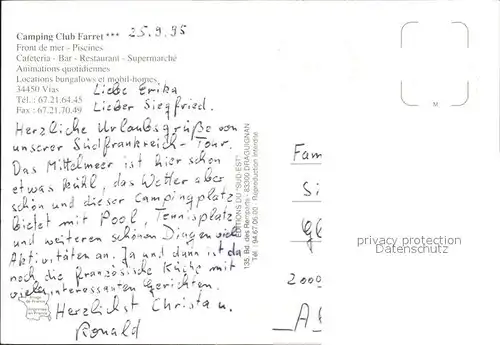 Camping Club Farret *** 25.9.95
Front de mer - Piscines
Cafétéria - Bar - Restaurant - Supermarché
Animations quotidiennes
Locations bungalows et mobil-homes
34450 Vias
Tél. : 67.21.64.45
Fax : 67.21.70.49
Liebe Erika
Lieber Siegfried.
Herzliche Urlaubsgrüße von
unserer Südfrankreich-Tour.
Das Mittelmeer ist hier schon
etwas kühl, das Wetter aber
schön und dieser Campingplatz
bietet mit Pool, Tennisplatz
und weiteren schönen Dingen viele
Aktivitäten an. Ja und dann ist da
noch die französische Küche mit
vielen interessanten Gerichten.
Herzlichst Christa u.
Ronald
EDITIONS DU "SUD-EST"
135, Bd. des Remparts - 83300 DRAGUIGNAN
Tél : 94.67.05.20 - Reproduction interdite
M
Fam
Si
2000
A
privacy protection
Datenschutz